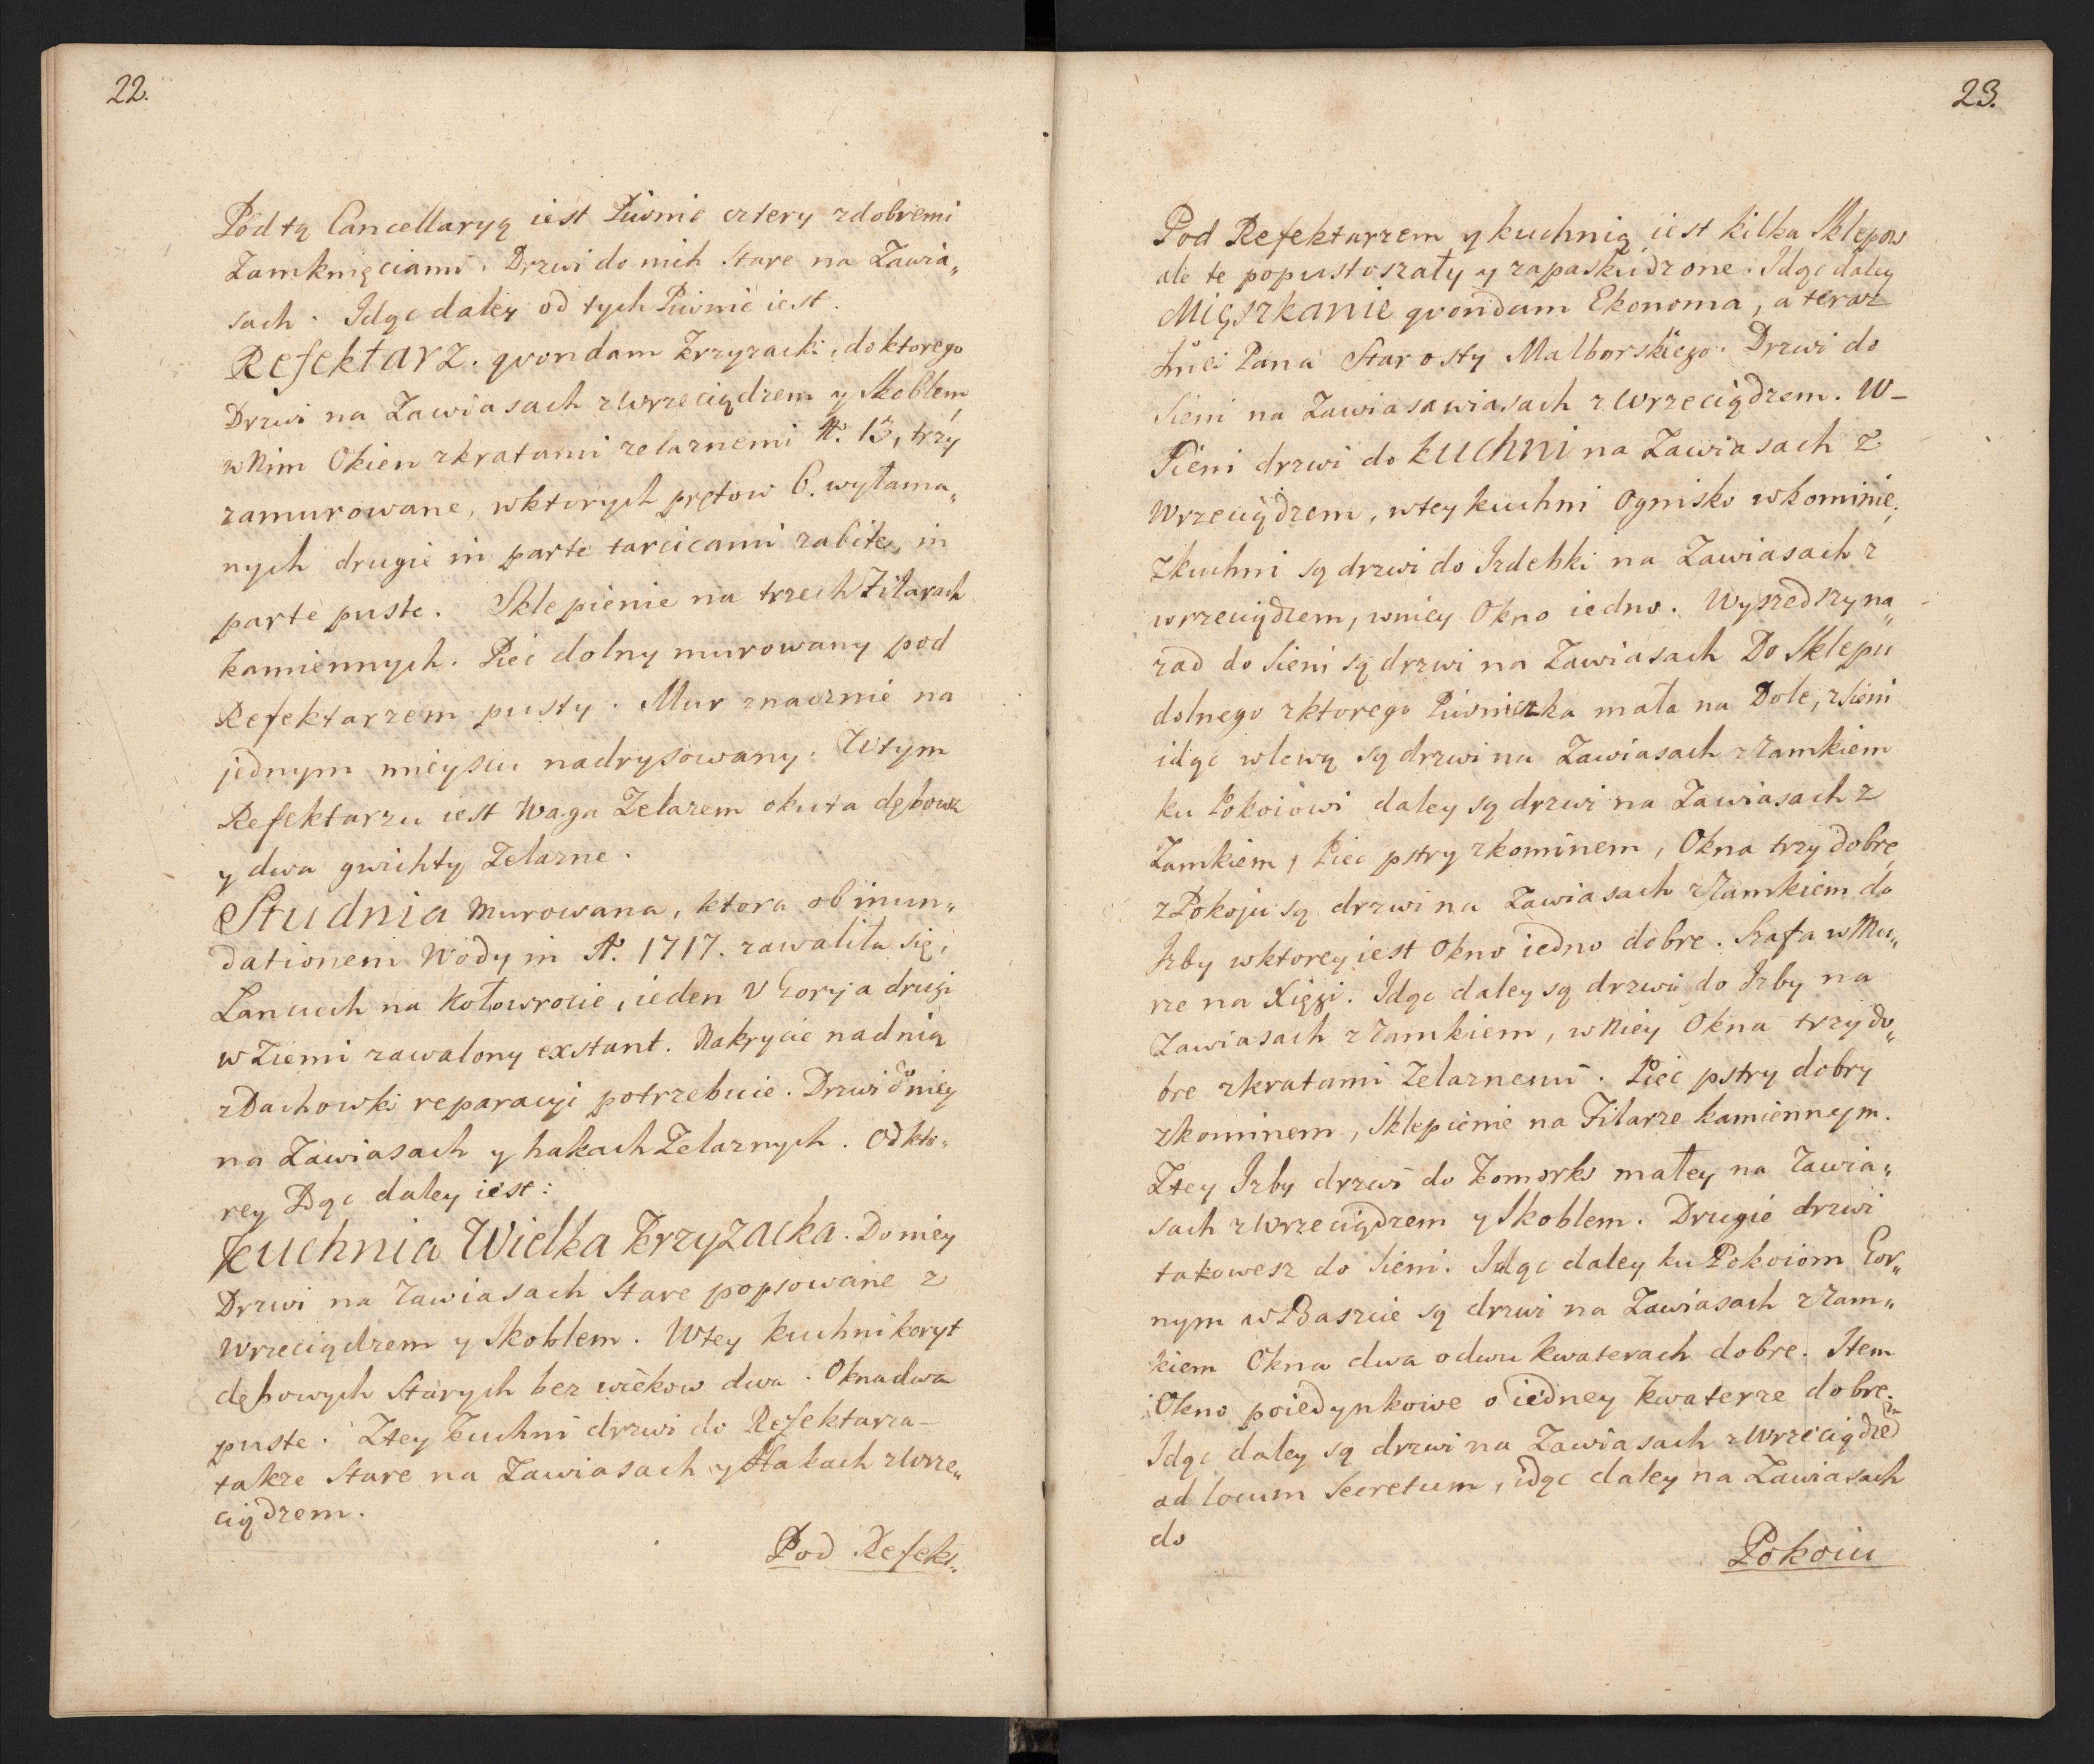 22.
Pod tą Cancellaryą iest Piwnic cztery z dobremi
Zamknięciami. Drzwi do nich Stare na Zawia„
sach. Idąc daley od tych Piwnic iest.
Refektarz. qvondam Krzyzacki, do ktorego
Drzwi na Zawiasach z Wrzeciądzem y Skoblem
w Nim Okien z kratami zelaznemi N. 13, trzy
zamurowane, w ktorych prętow 6. wyłama„
nych drugie in parte tarcicami zabite, in
parte puste. Sklepienie na trzech Filarach
kamiennych. Piec dolny murowany pod
Refektarzem pusty. Mur znacznie na
jednym mieyscu nadrysowany. W tym
Refektarzu iest Waga Zelazem okuta dębowa
y dwa gwichty Zelazne.
Studnia Murowana, ktora ob inun„
dationem Wody in A. 1717. zawaliła się,
Lancuch na Kołowrocie, ieden V Gory a drugi
w Ziemi zawalony exstant. Nakrycie nad nią
z Dachowki reparacyi potrzebuie. Drzwi do niey
na Zawiasach y hakach Zelaznych. Od kto„
rey Idąc daley iest:
Kuchnia Wielka Krzyzacka. Do niey
Drzwi na Zawiasach Stare popsowane z
Wrzeciądzem y Skoblem. W tey kuchni koryt
dębowych Starych bez wiekow dwa. Okna dwa
puste. Z tey Kuchni drzwi do Refektarza –
takze Stare na Zawiasach y Hakach z Wrze„
ciądzem.
Pod Refekt„
23.
Pod Refektarzem y kuchnią iest kilka Sklepow
ale te popustoszały y zapaskudzone. Idąc daley
Mięszkanie qvondam Ekonoma, a teraz
Jmci Pana Starosty Malborskiego. Drzwi do
Sieni na Zawiasawiasach z Wrzeciądzem. W –
Sieni drzwi do Kuchni na Zawiasach z
Wrzeciądzem, w tey kuchni Ognisko w kominie,
Z kuchni są drzwi do Izdebki na Zawiasach z
wrzeciądzem, w niey Okno iedno. Wyszedszy na„
zad do Sieni są drzwi na Zawiasach Do Sklepu
dolnego z ktorego Piwniczka mała na Dole, z Sieni
idąc w lewą są drzwi na Zawiasach z Zamkiem
ku Pokoiowi daley są drzwi na Zawiasach z
Zamkiem, Piec pstry z kominem, Okna trzy dobre,
z Pokoju są drzwi na Zawiasach z Zamkiem do
Izby w ktorey iest Okno iedno dobre. Szafa w Mu„
rze na Xięgi. Idąc daley są drzwi do Izby na
Zawiasach z Zamkiem, w Niey Okna trzy do„
bre z kratami Zelaznemi. Piec pstry dobry
z kominem, Sklepienie na Filarze kamiennym.
Z tey Izby drzwi do Komorki małey na Zawia„
sach z Wrzeciądzem y Skoblem. Drugie drzwi
takowesz do Sieni. Idąc daley ku Pokoiom Gor„
nym w Baszcie są drzwi na Zawiasach z Zam„
kiem Okna dwa o dwu kwaterach dobre. Item
Okno poiedynkowe o iedney kwaterze dobre.
Idąc daley są drzwi na Zawiasach z Wrzeciądzem
ad locum Secretum, idąc daley na Zawiasach
do
Pokoiu